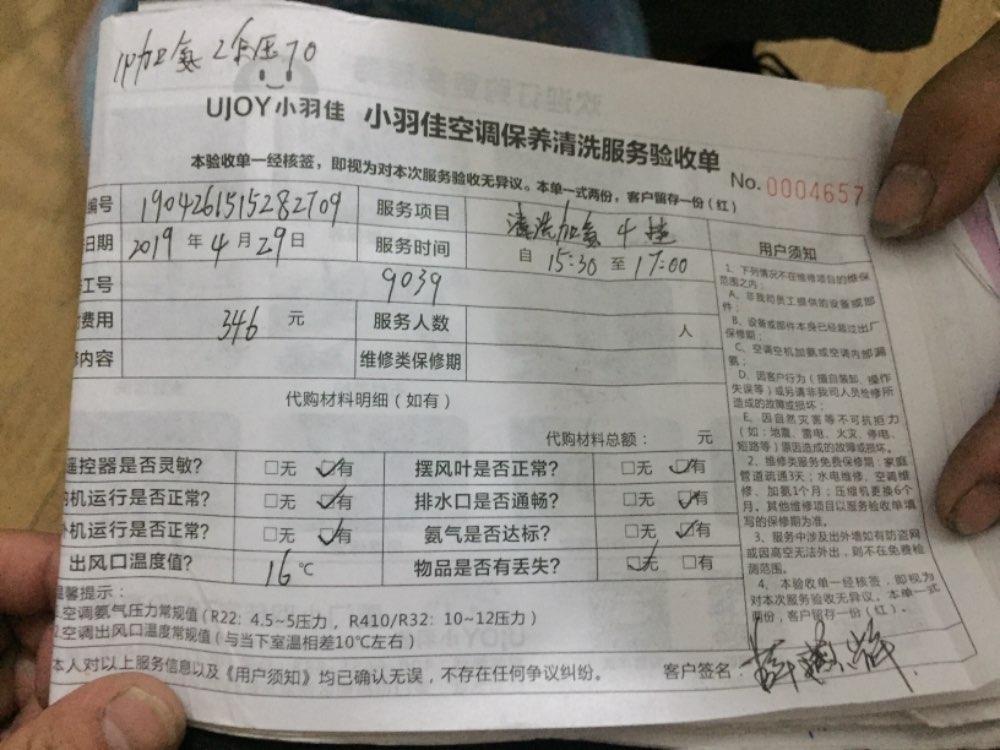 加氨2个压70
UJOY小羽佳 小羽佳空调保养清洗服务验收单
本验收单一经核签，即视为对本次服务验收无异议。本单一式两份，客户留存一份（红）
No. 0004657
编号 1904261515282709 服务项目 清洗加氨 4挂
日期 2019 年 4 月 29 日 服务时间 自 15:30 至 17:00
工号 9039
费用 346 元 服务人数 人
内容 维修类保修期
代购材料明细（如有）
代购材料总额： 元
遥控器是否灵敏? □无 ☑有 摆风叶是否正常? □无 ☑有
机运行是否正常? □无 ☑有 排水口是否通畅? □无 ☑有
外机运行是否正常? □无 ☑有 氨气是否达标? □无 ☑有
出风口温度值? 16 ℃ 物品是否有丢失? ☑无 □有
温馨提示：
空调氨气压力常规值（R22：4.5~5压力，R410/R32：10~12压力）
空调出风口温度常规值（与当下室温相差10℃左右）
本人对以上服务信息以及《用户须知》均已确认无误，不存在任何争议纠纷。 客户签名：
用户须知
1、下列情况不在维修项目的维保
范围之内：
A、非我司员工提供的设备或部
件；
B、设备或部件本身已经超过出厂
保修期；
C、空调空机加氨或空调内部漏
氨；
D、因客户行为（擅自装卸、操作
失误等）或另请非我司人员检修所
造成的故障或损坏；
E、因自然灾害等不可抗拒力
（如：地震、雷电、火灾、停电、
短路等）原因造成的故障或损坏。
2、维修类服务免费保修期：家庭
管道疏通3天；水电维修、空调维
修、加氨1个月；压缩机更换6个
月。其他维修项目以服务验收单填
写的保修期为准。
3、服务中涉及出外墙如有防盗网
或因高空无法外出，则不在免费检
测范围。
4、本验收单一经核签，即视为
对本次服务验收无异议。本单一式
两份，客户留存一份（红）。